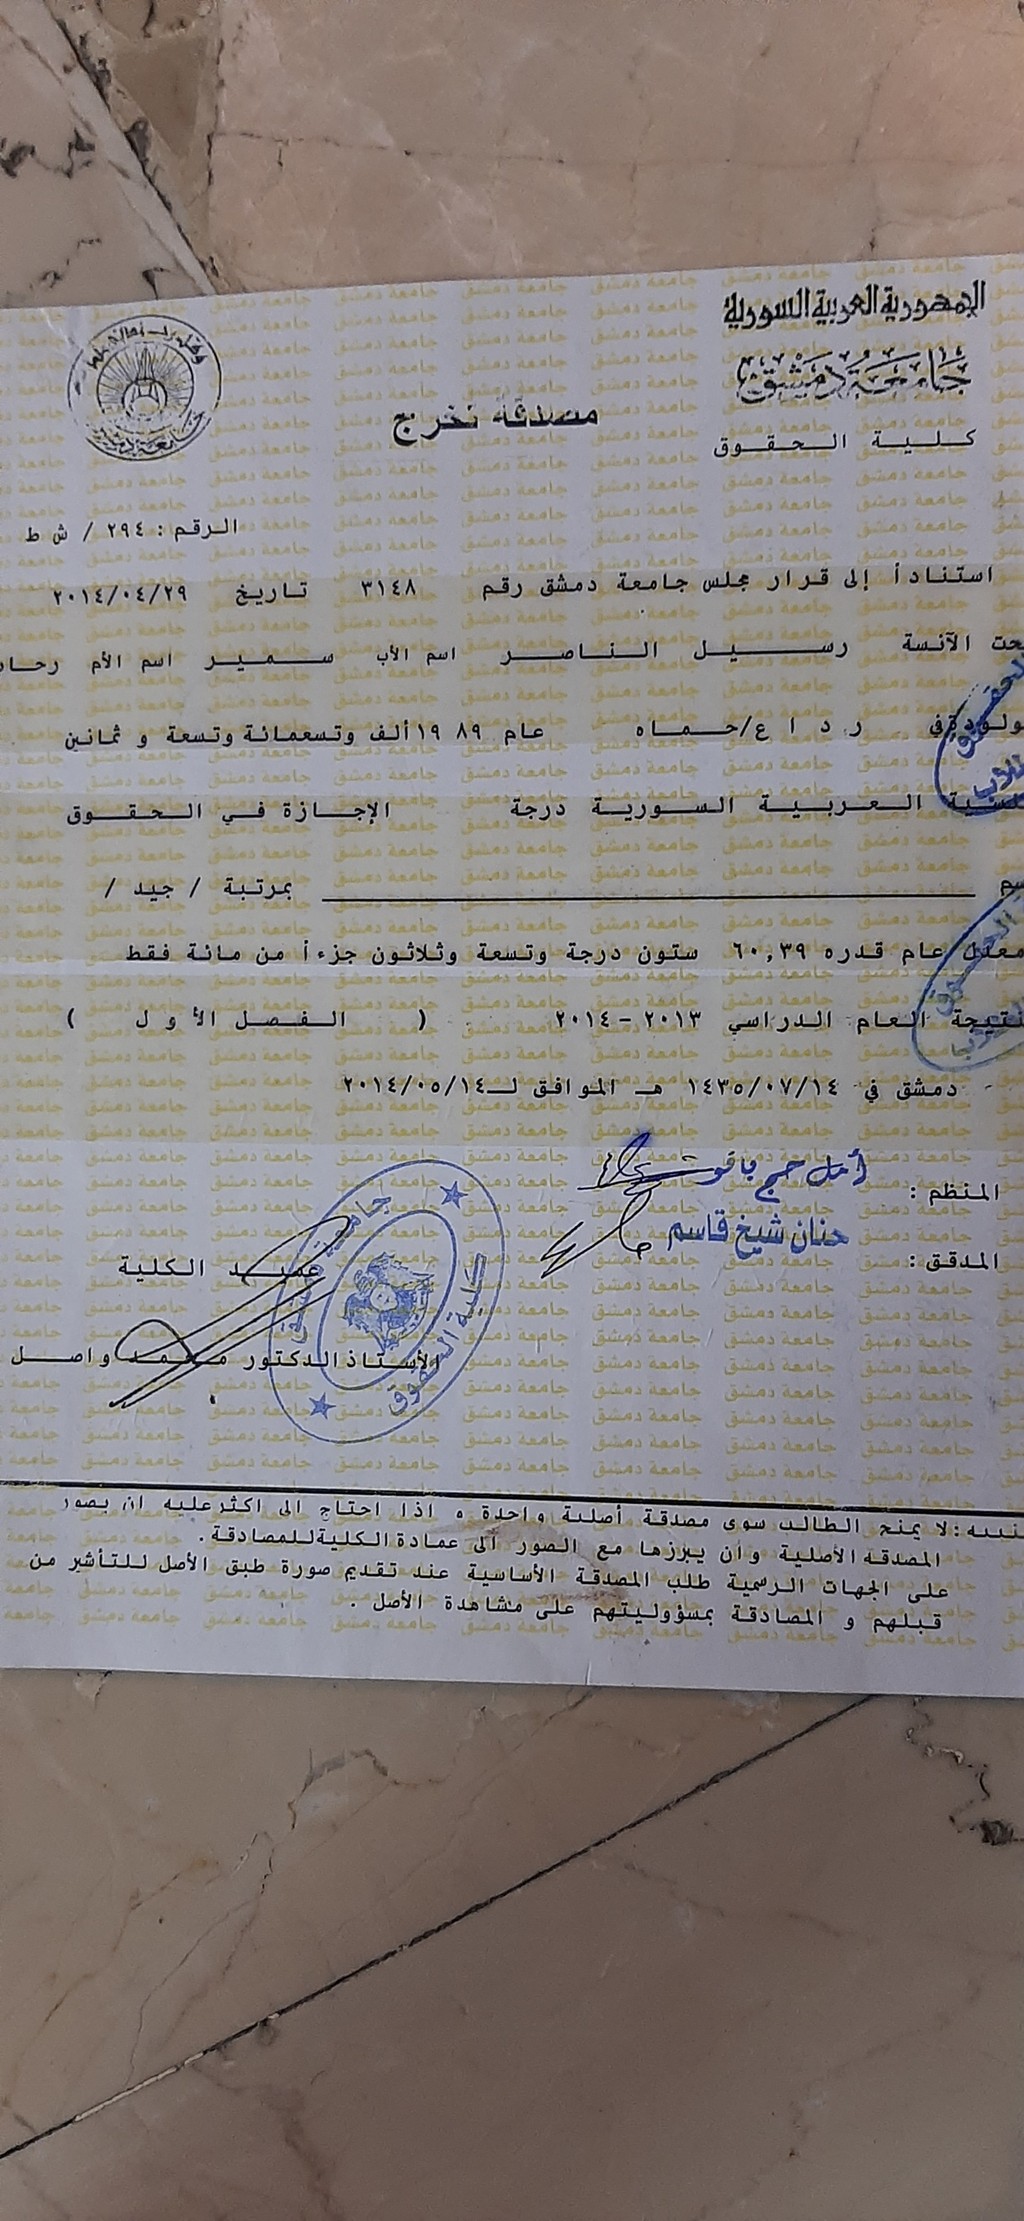 الجمهورية العربية السورية
جامعة دمشق
كلية الحقوق
مصدقة تخرج
وقل رب زدني علما
جامعة دمشق
الرقم : ٢٩٤ / ش ط
استناداً إلى قرار مجلس جامعة دمشق رقم ٣١٤٨ تاريخ ٢٠١٤/٠٤/٢٩
الآنسة رسيل الناصر اسم الأب سمير اسم الأم
في رداع/حماه عام ١٩٨٩ ألف وتسعمائة وتسعة و ثمانين
العربية السورية درجة الإجازة في الحقوق
بمرتبة / جيد /
معدل عام قدره ٦٠,٣٩ ستون درجة وتسعة وثلاثون جزءاً من مائة فقط
نتيجة العام الدراسي ٢٠١٣-٢٠١٤ ( الفصل الأول )
دمشق في ١٤٣٥/٠٧/١٤ هـ الموافق لـ ٢٠١٤/٠٥/١٤
المنظم : أمل حج
المدقق : حنان شيخ قاسم
عميد الكلية
الأستاذ الدكتور محمد واصل
جامعة دمشق
كلية الحقوق
لا يمنح الطالب سوى مصدقة أصلية واحدة ه اذا احتاج الى اكثر عليه ان يصور
المصدقة الأصلية وان يبرزها مع الصور الى عمادة الكلية للمصادقة .
على الجهات الرسمية طلب المصدقة الأساسية عند تقديم صورة طبق الأصل للتأشير من
قبلهم و المصادقة بمسؤوليتهم على مشاهدة الأصل .